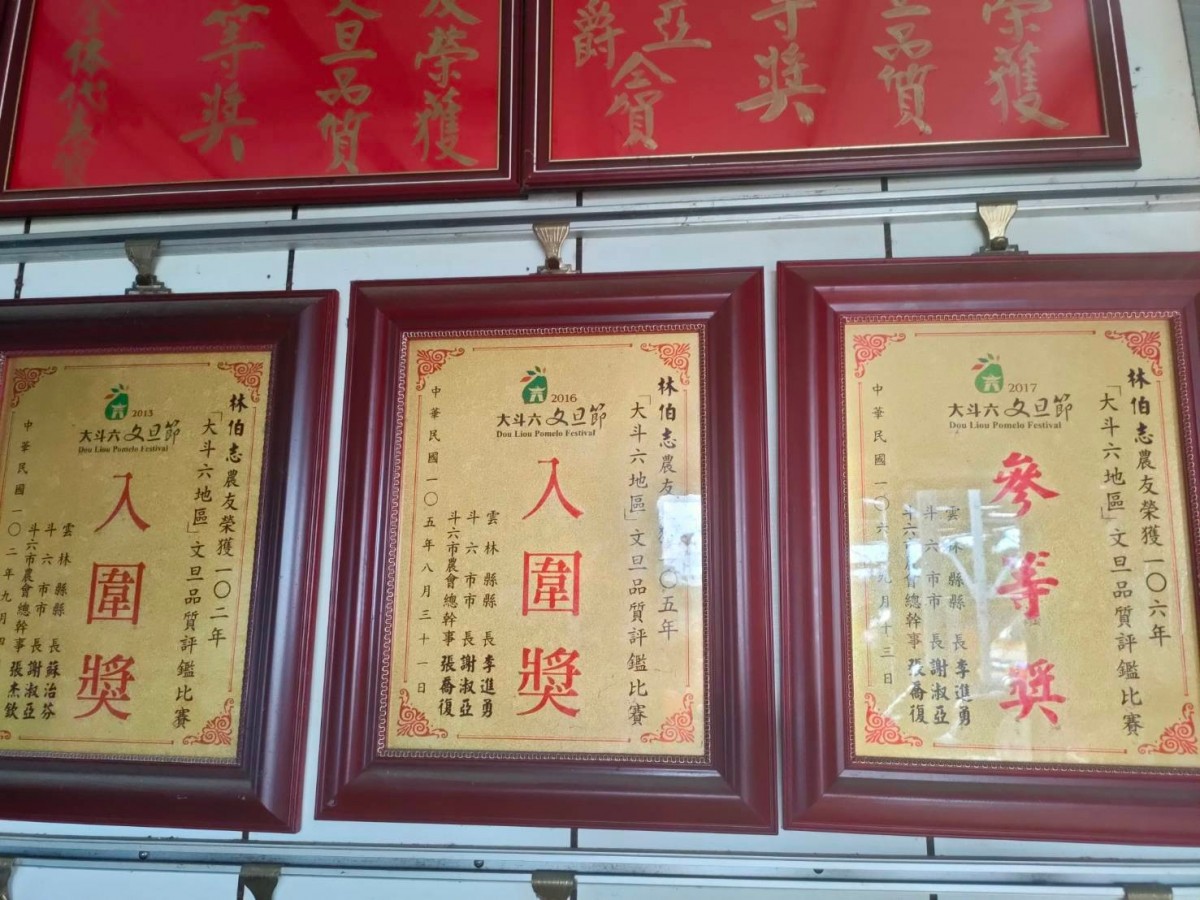 友榮獲
文旦品質
等獎
榮獲
品質
等獎
亞
爵
賀
2013
大斗六文旦節
Dou Liou Pomelo Festival
林伯志農友榮獲一〇二年
「大斗六地區」文旦品質評鑑比賽
入圍獎
雲林縣縣長蘇治芬
斗六市市長謝淑亞
斗六市農會總幹事張杰欽
中華民國一〇二年九月
2016
大斗六文旦節
Dou Liou Pomelo Festival
林伯志農友
〇五年
「大斗六地區」文旦品質評鑑比賽
入圍獎
雲林縣縣長李進勇
斗六市市長謝淑亞
斗六市農會總幹事張喬復
中華民國一〇五年八月三十一日
2017
大斗六文旦節
Dou Liou Pomelo Festival
林伯志農友榮獲一〇六年
「大斗六地區」文旦品質評鑑比賽
參等獎
雲林縣縣長李進勇
斗六市市長謝淑亞
斗六市農會總幹事張喬復
中華民國一〇六年九月十三日